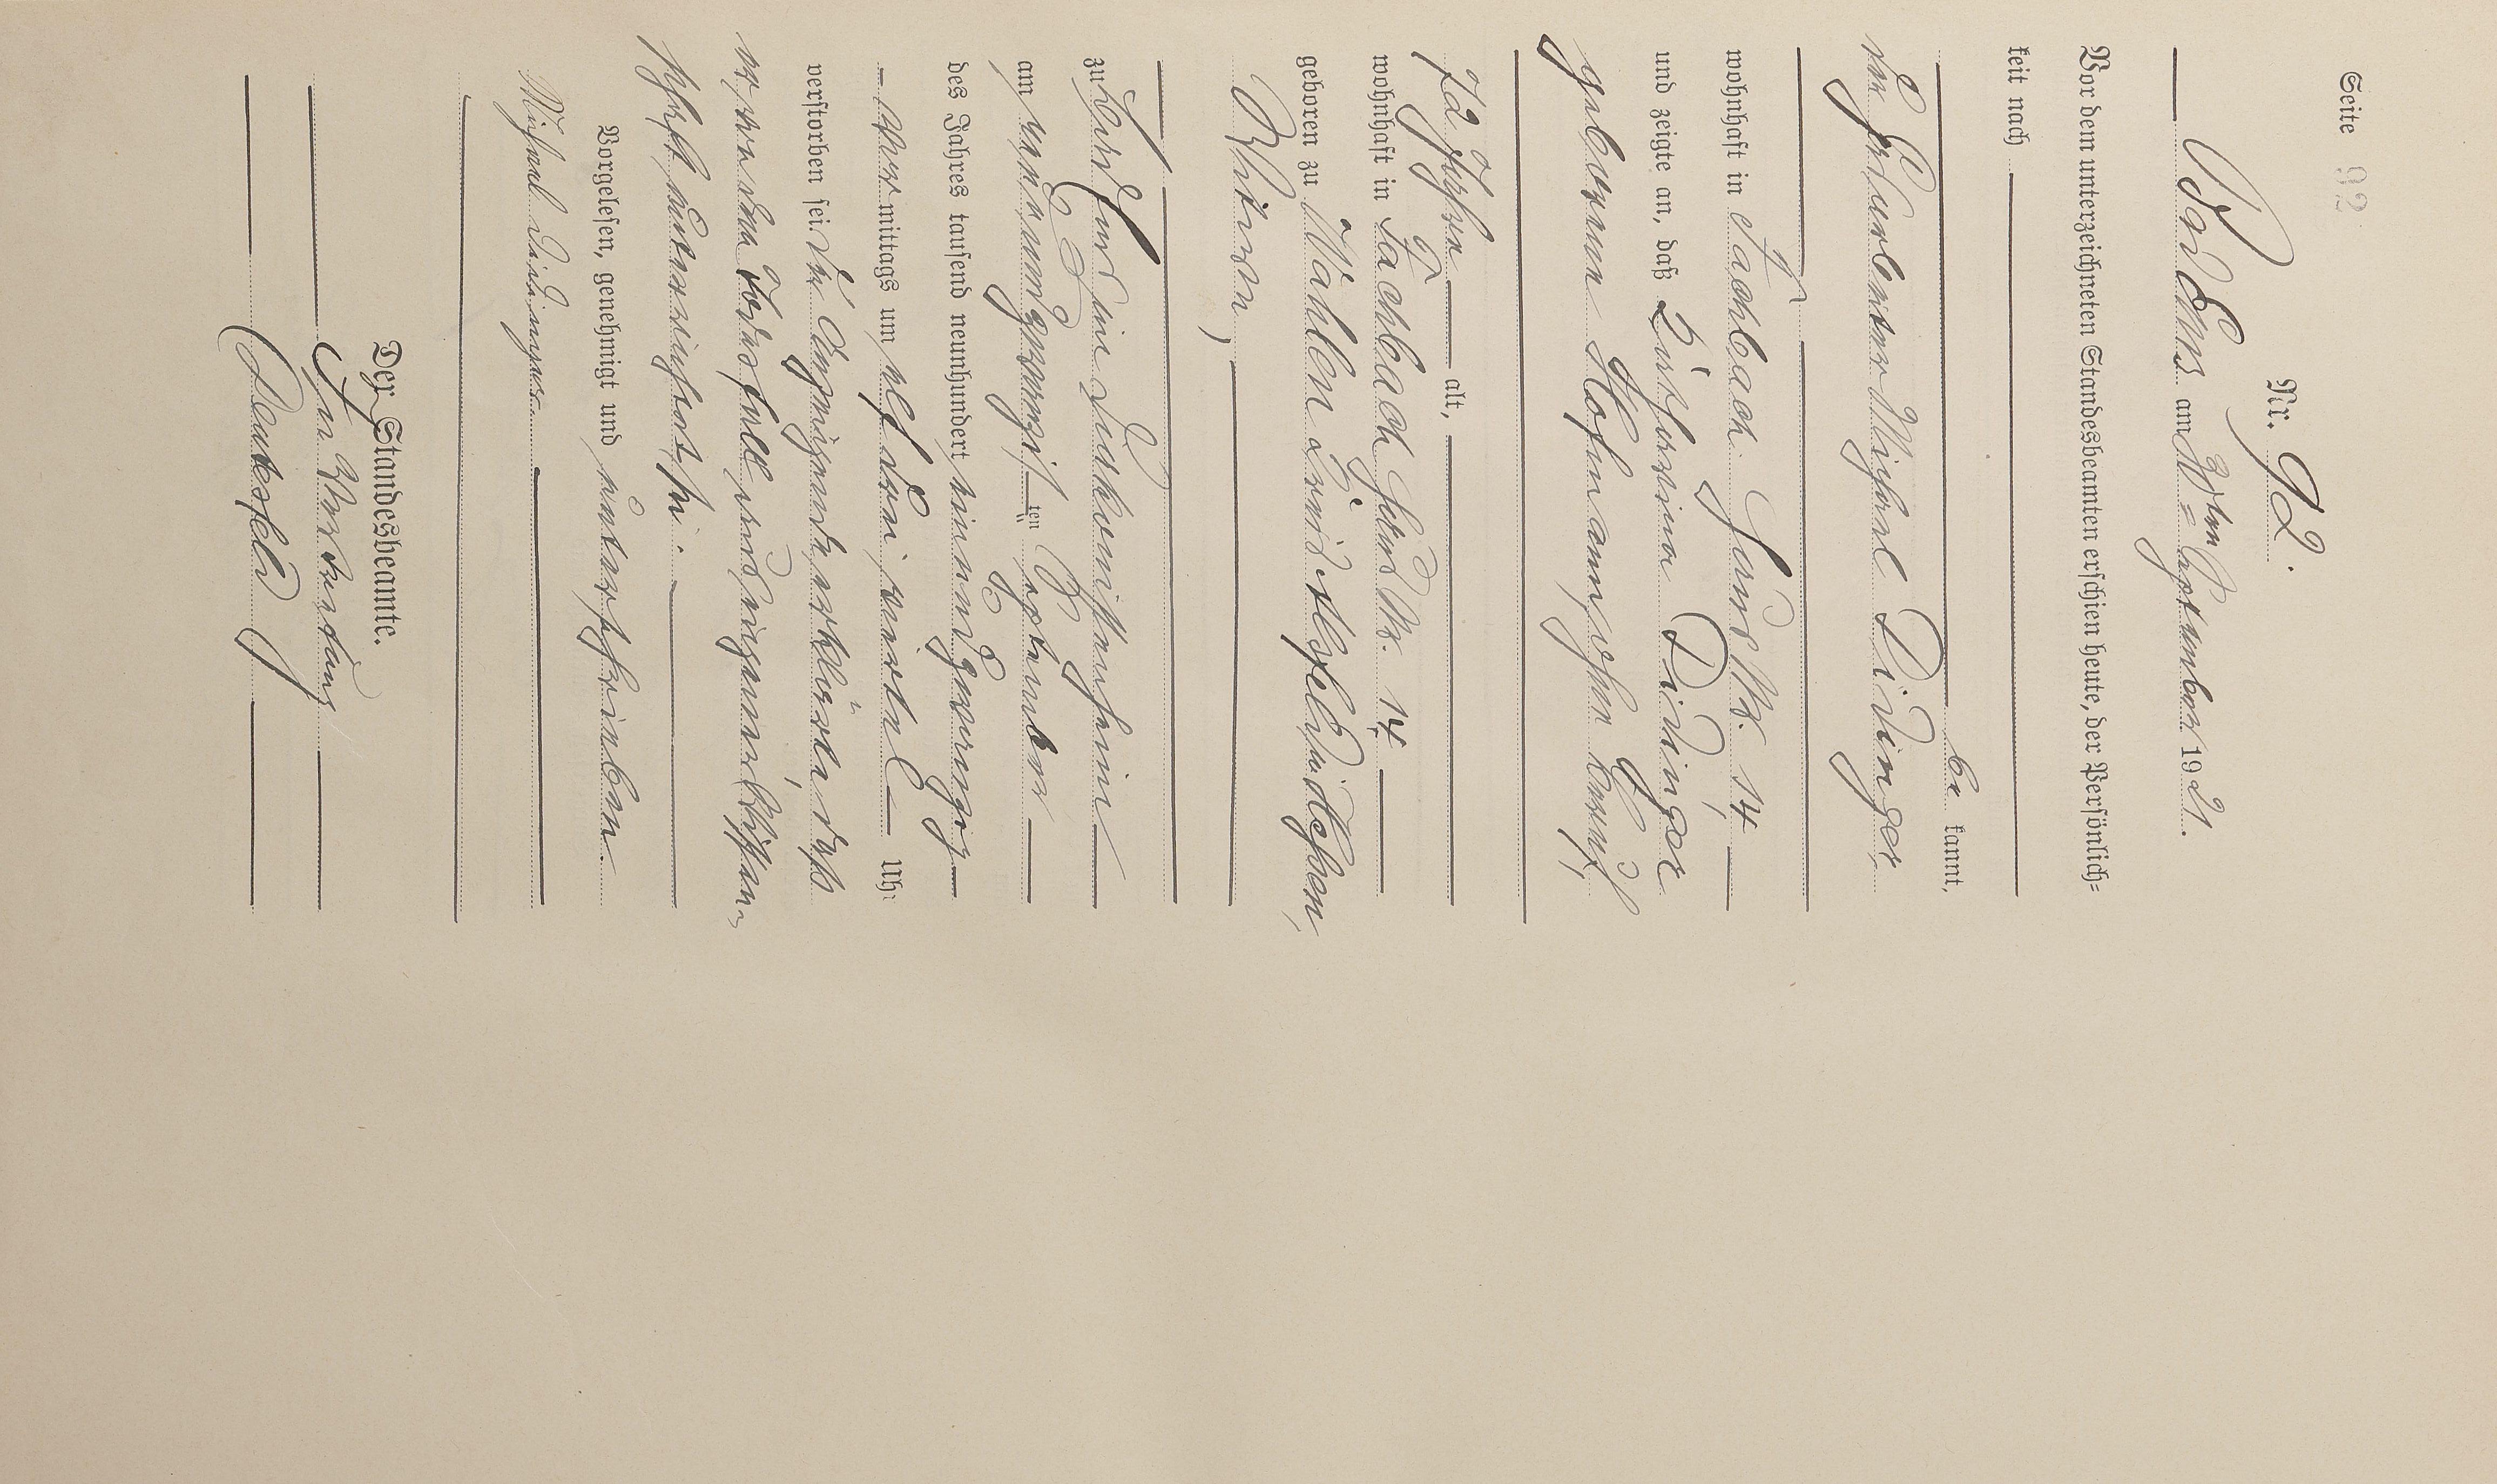 Seite 92
Nr. 92.
Bad Ems am 30ten September 1921.
Vor dem unterzeichneten Standesbeamten erschien heute, der Persönlich-
keit nach
be kannt,
der Erdarbeiter Michael Didinger
wohnhaft in Fachbach Haus Nr. 14
und zeigte an, daß Katharina Didinger
geborenen Hofmann, ohne Beruf,
72 Jahre alt,
wohnhaft in Fachbach Haus Nr. 14
geboren zu Mählen Kreis
Witwe,
zu Bad Ems im Diakonissenheim
am neunundzwanzigsten September
des Jahres tausend neunhundert einundzwanzig
vormittags um elf drei viertel Uhr
verstorben sei. Der Anzeigende erklärte, daß
er von dem Todesfall aus eigener Wissen-
schaft unterrichtet sei.
Vorgelesen, genehmigt und unterschrieben.
Michael Didinger
Der Standesbeamte.
In Vertretung